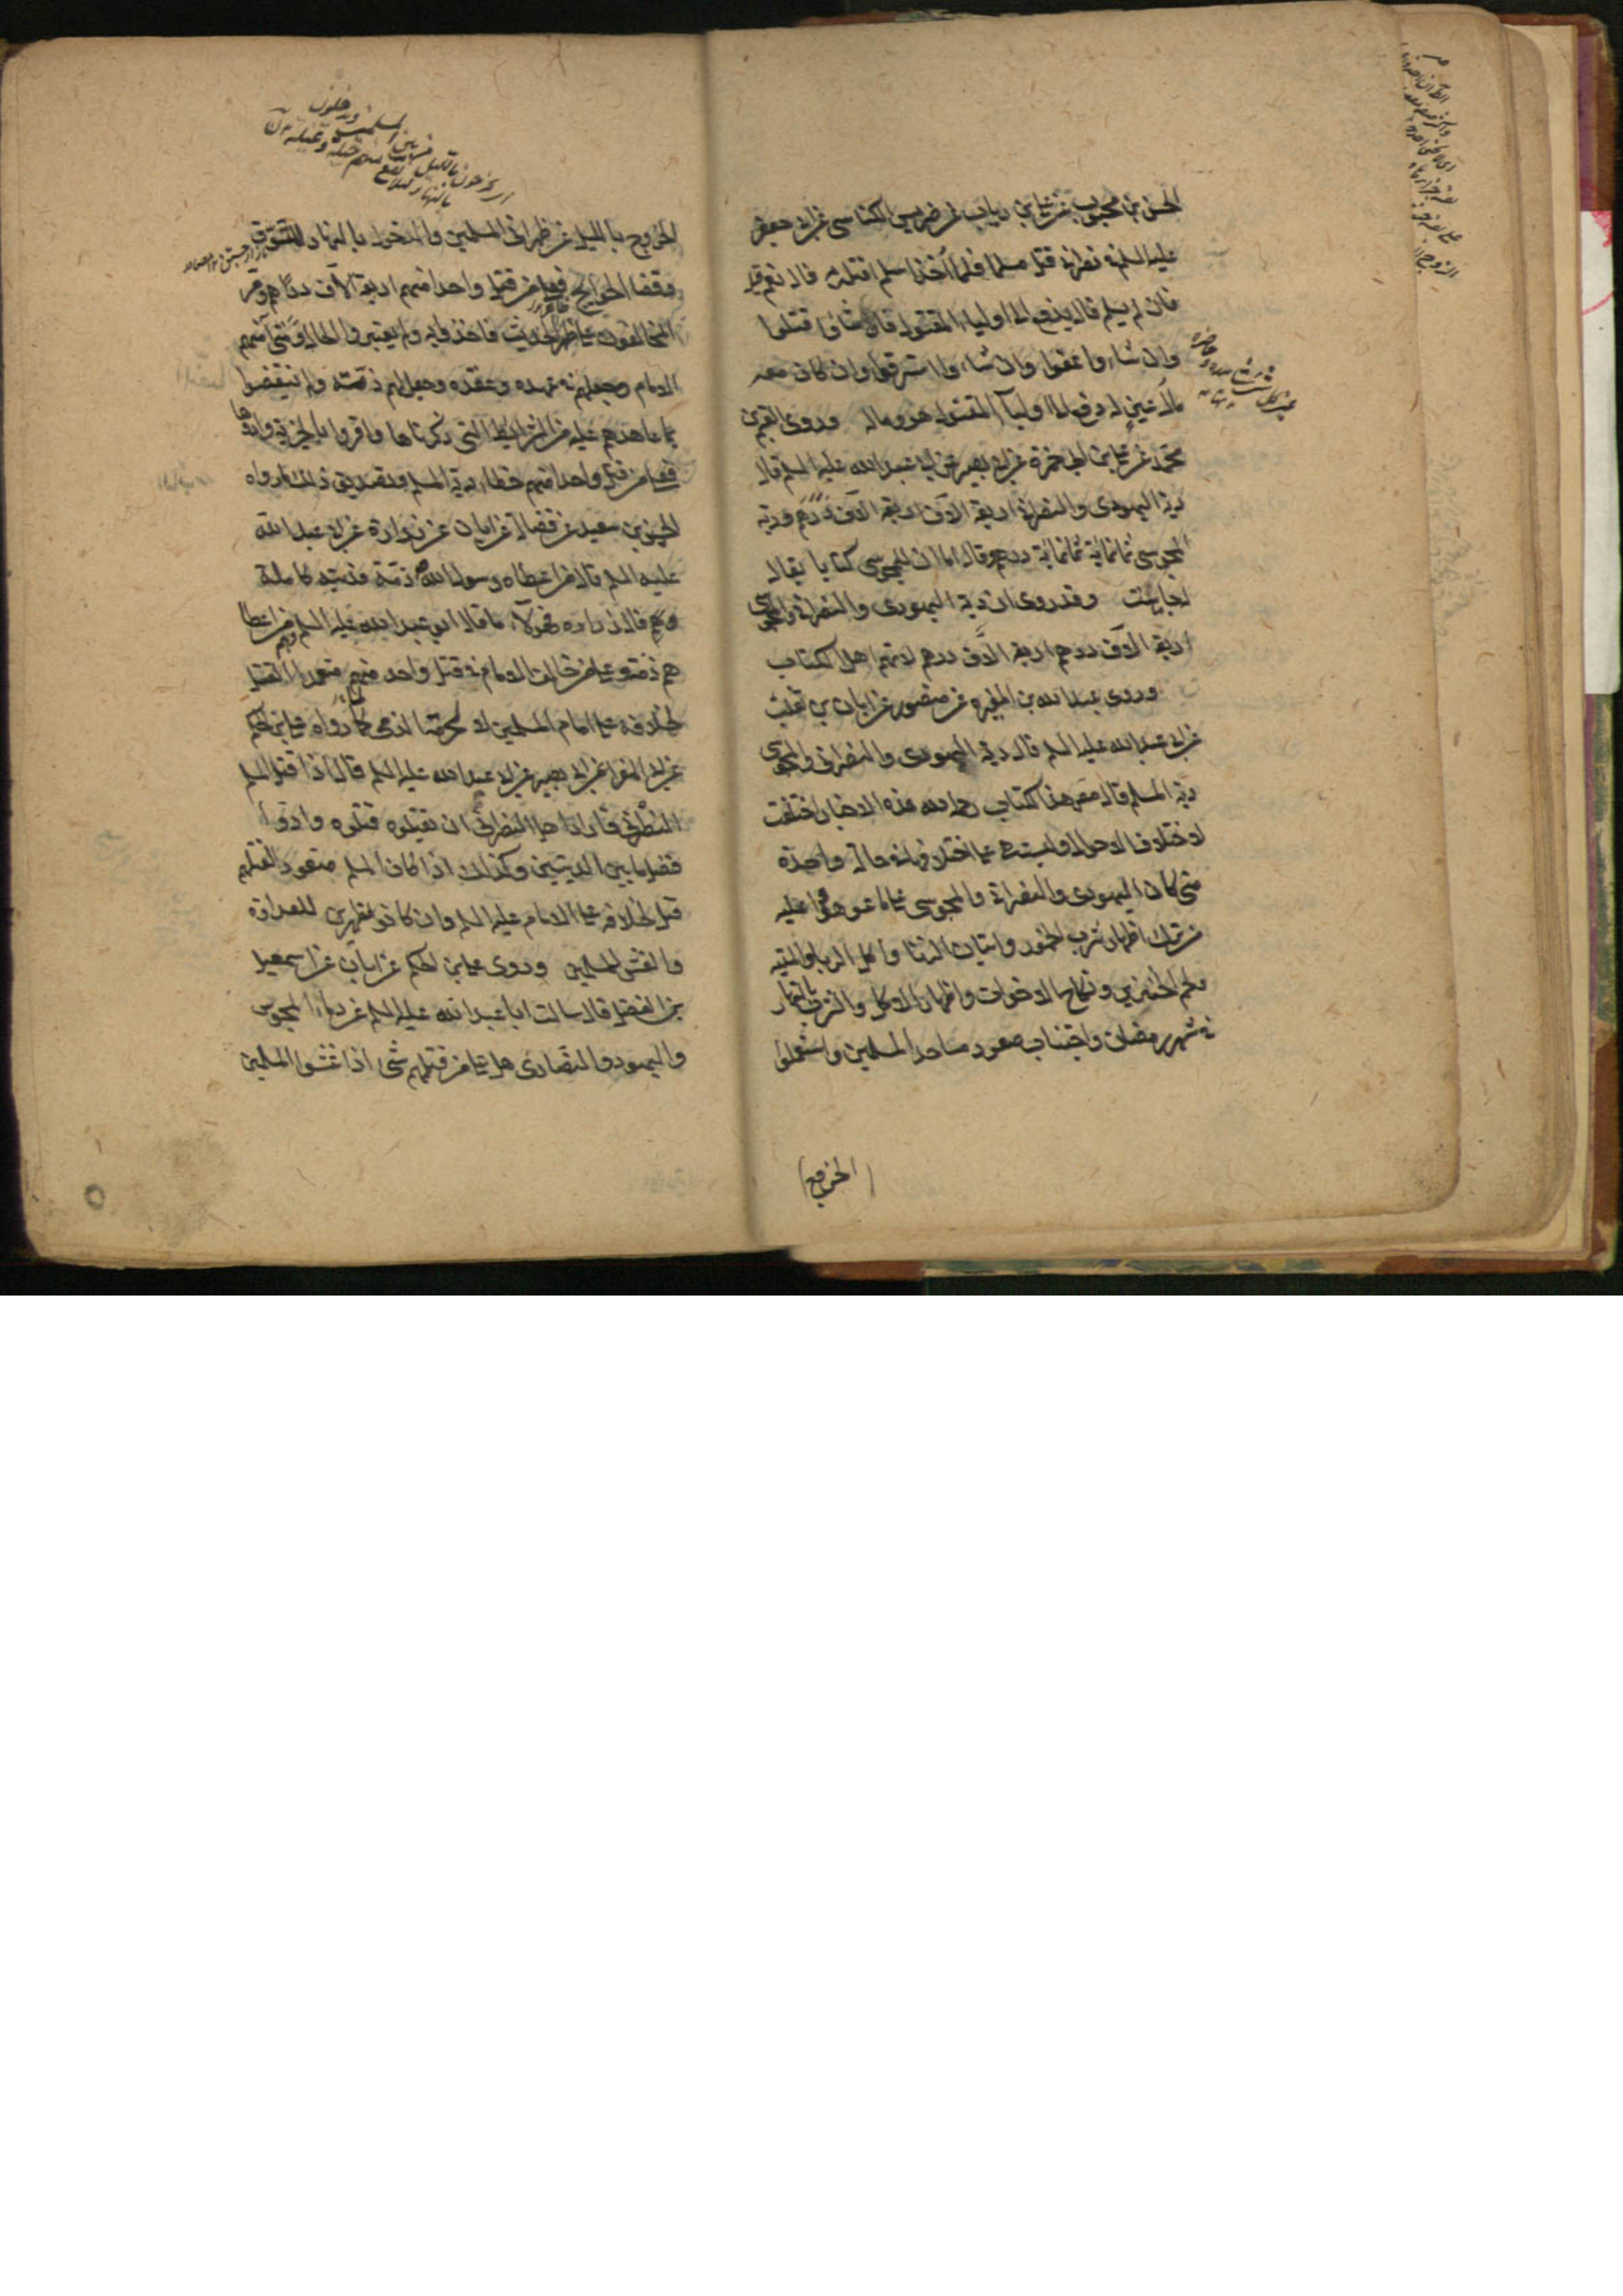 الحسن بن محبوب عن علي بن رياب عن ضريس الكناسي عن ابي جعفر
عليه السلم في نصراني قتل مسلما فلما اخذ اسلم اقتله به قال نعم قيل
فان لم يسلم قال يدفع الى اولياء المقتول فان شاؤا قتلوا
وان شاءوا عفوا وان شاءوا استرقوا وان كان معه
مال عين له دفع الى اولياء المقتول هو وماله وروى القسم بن
محمد عن علي بن ابي حمزة عن ابي بصير عن ابي عبد الله عليه السلم قال
دية اليهودي والنصراني اربعة آلاف اربعة آلاف درهم ودية
المجوسي ثمانمائة ثمانمائة درهم وقال اما ان للمجوسي كتابا يقال
له جاماست وقد روى ان دية اليهودي والنصراني والمجوسي
اربعة الاف درهم اربعة الاف درهم لانهم اهل الكتاب
وروى عبد الله بن المغيرة عن منصور عن ابان بن تغلب
عن ابي عبد الله عليه السلم قال دية اليهودي والنصراني والمجوسي
دية المسلم قال مصنف هذا الكتاب رحمه الله هذه الاخبار اختلفت
لاختلاف الاحوال وليست هي على اختلافها في حال واحدة
متى كان اليهودي والنصراني والمجوسي على ما عوهدوا عليه
من ترك اظهار شرب الخمور واتيان الزنا واكل الربا والميتة
ولحم الخنزير ونكاح الاخوات واظهار الاكل والشرب بالنهار
في شهر رمضان واجتناب صعود مساجد المسلمين واستعملوا
الخروج
الخروج بالليل عن ظهراني المسلمين والدخول بالنهار للتسوق
وقضا الحوايج فعلى من قتل واحدا منهم اربعة آلاف درهم ومر
المخالفون على ظاهر الحديث فاخذوا به ولم يعتبروا الحال ومتى آمنهم
الامام وجعلهم في عهده وعقده وجعل لهم ذمة ولم ينقضوا
ما عاهدهم عليه من الشرايط التي ذكرناها واقروا بالجزية وادوها
فعلى من قتل واحدا منهم خطاء دية المسلم وتصديق ذلك ما رواه
الحسين بن سعيد عن فضالة عن ابان عن زرارة عن ابي عبد الله
عليه السلم قال من اعطاه رسول الله ذمة فديته كاملة
قال زرارة فهولاء ما قال ابو عبد الله عليه السلم وهم من اعطا
هم ذمة وعلى من خالف الامام في قتل واحد منهم متعمدا القتل
لخلافه على امام المسلمين لا لحرمة الذمي كما رواه علي بن الحكم
عن ابي المغرا عن ابي بصير عن ابي عبد الله عليه السلم قال اذا قتل المسلم
النصراني فاراد اهل النصراني ان يقتلوه قتلوه وادوا
فضل ما بين الديتين وكذلك اذا كان المسلم متعود القتلهم
قتل لخلافه على الامام عليه السلم وان كانوا مظهرين للعداوة
والغش للمسلمين وروى علي بن الحكم عن ابان عن اسمعيل
بن الفضل قال سالت ابا عبد الله عليه السلم عن دماء المجوس
واليهود والنصارى هل على من قتلهم شي اذا غشوا المسلمين